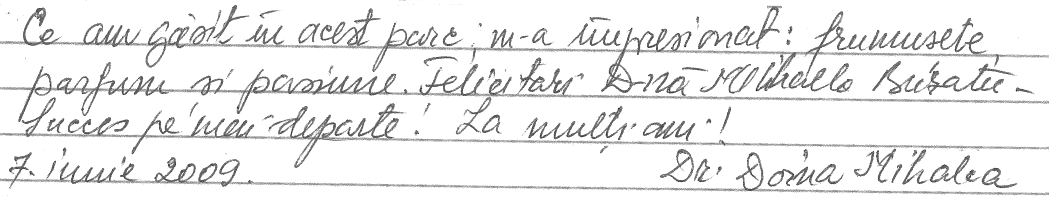 Ce am găsit în acest parc, m-a impresionat: frumusețe,
parfum si pasiune. Felicitări Dnă Mihaela
Succes pe mai departe! La mulți ani!
7. iunie 2009. Dr. Doina Mihalea